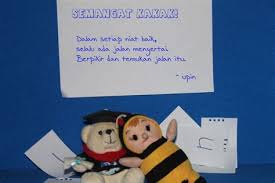 SEMANGAT KAKAK!
Dalam setiap niat baik,
selalu ada jalan menyertai
Berpikir dan temukan jalan itu.
- upin